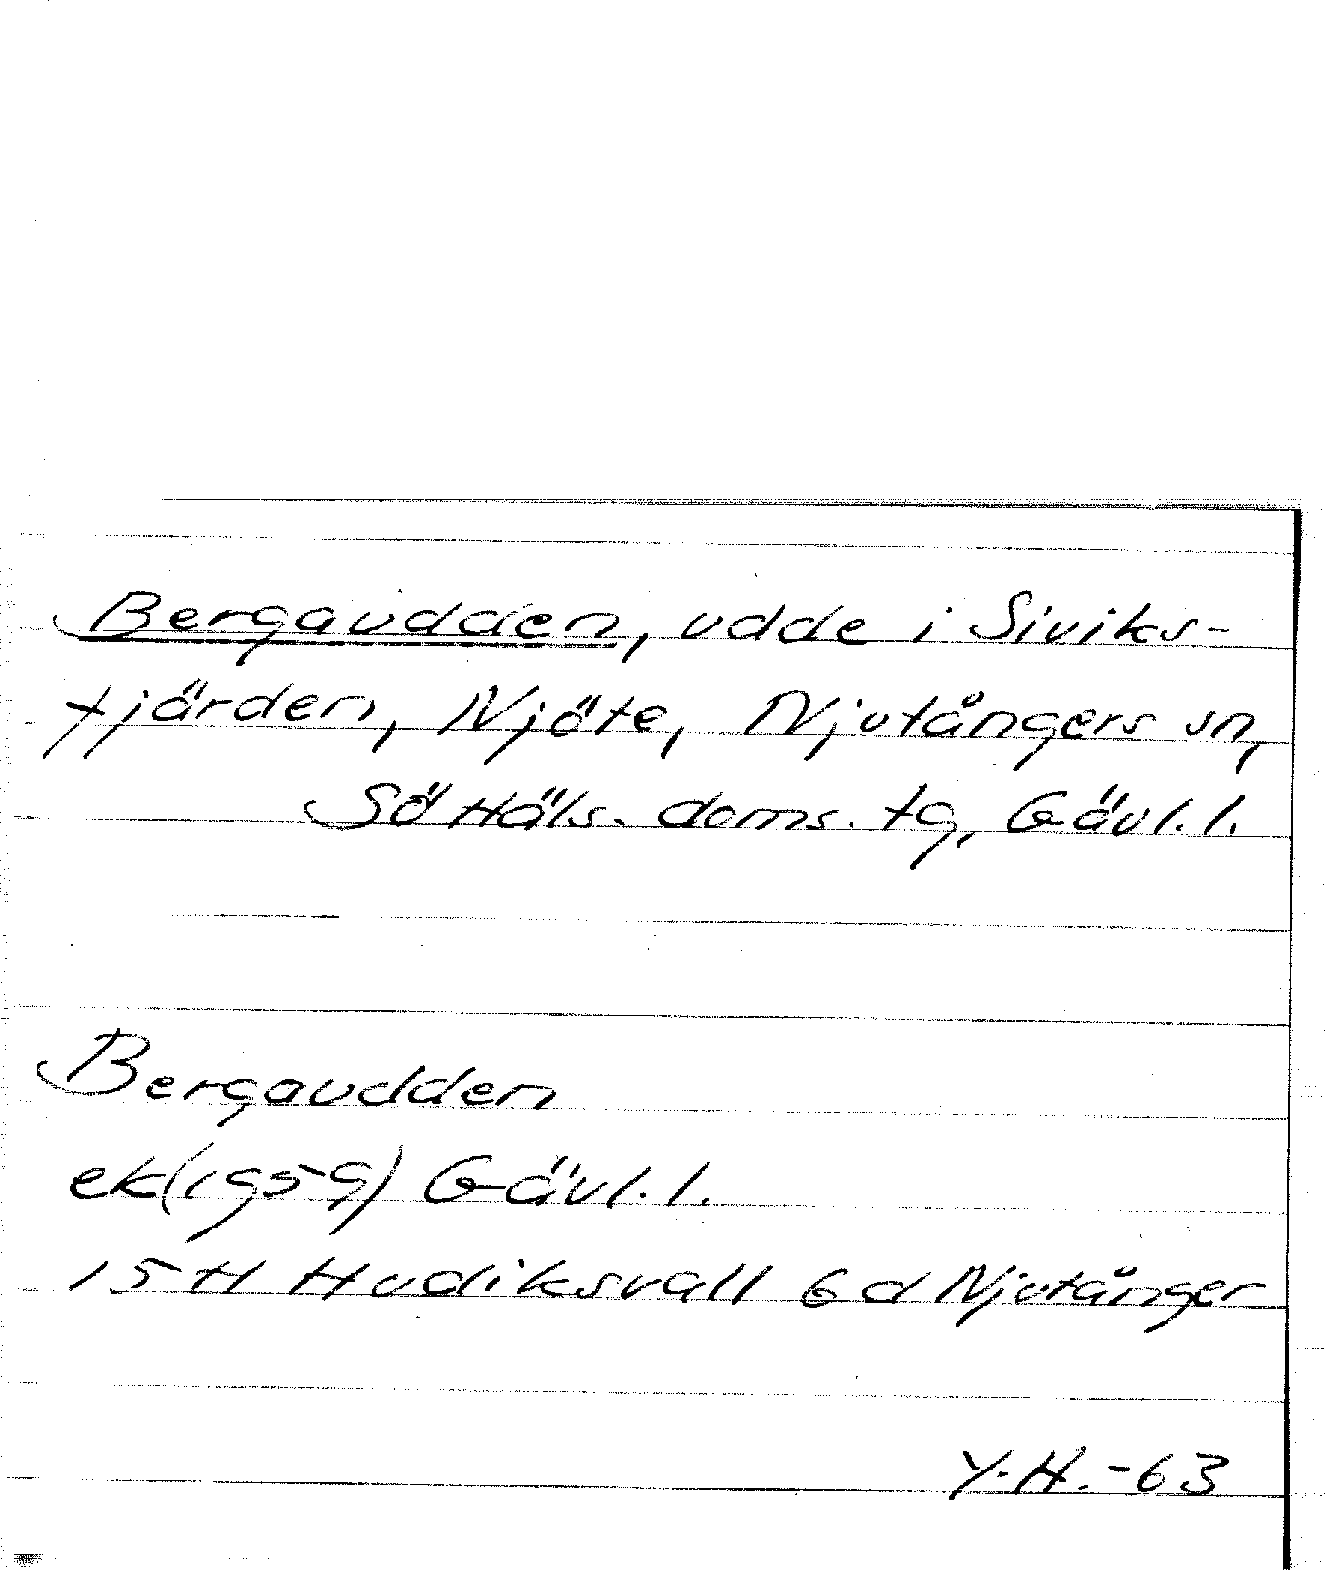 Bergaudden, udde i Siviks-
fjärden, Njöte, Njutångers sn,
Sö Häls. doms. tg, Gävl. l.
Bergaudden
ek (1959) Gävl. l.
15 H Hudiksvall 6 d Njutånger
Y. H. -63